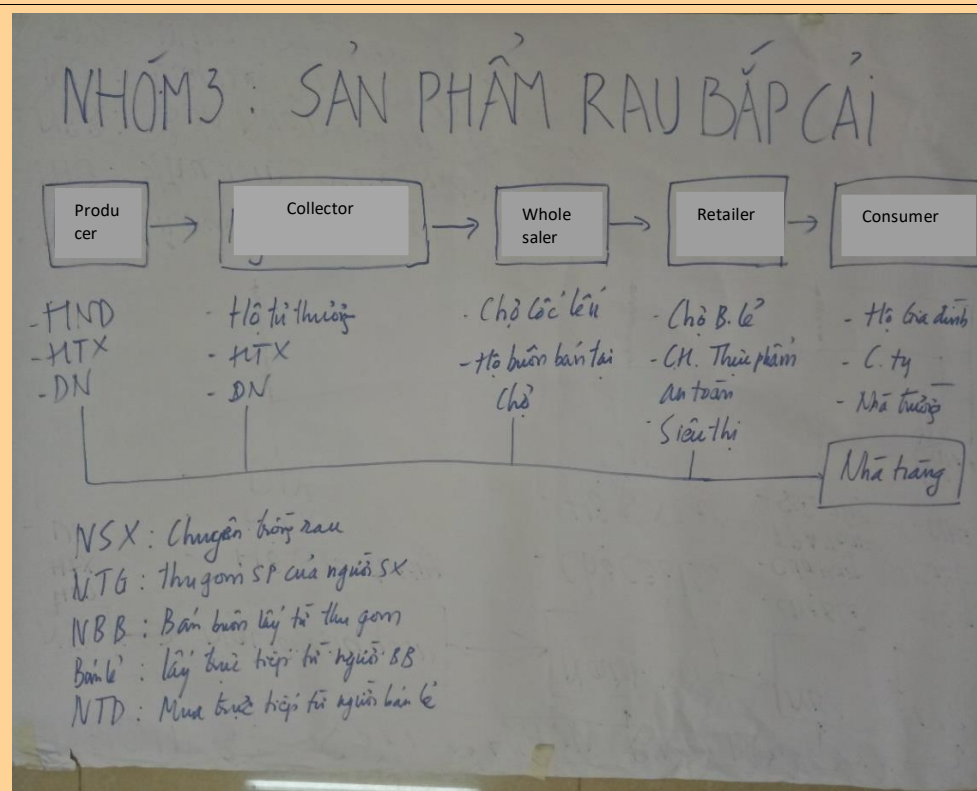 NHÓM 3 : SẢN PHẨM RAU BẮP CẢI
Produ
cer
Collector
Whole
saler
Retailer
Consumer
- HND
- HTX
- DN
- Hộ tư thương
- HTX
- DN
- Chợ Cốc lếu
- Hộ buôn bán tại
Chợ
- Chợ B. lẻ
- CH. Thực phẩm
an toàn
- Siêu thị
- Hộ Gia đình
- C. ty
- Nhà trường
Nhà hàng
NSX : Chuyên trồng rau
NTG : Thu gom SP của người SX
NBB : Bán buôn lấy từ thu gom
Bán lẻ : lấy trực tiếp từ người BB
NTD : Mua trực tiếp từ người bán lẻ